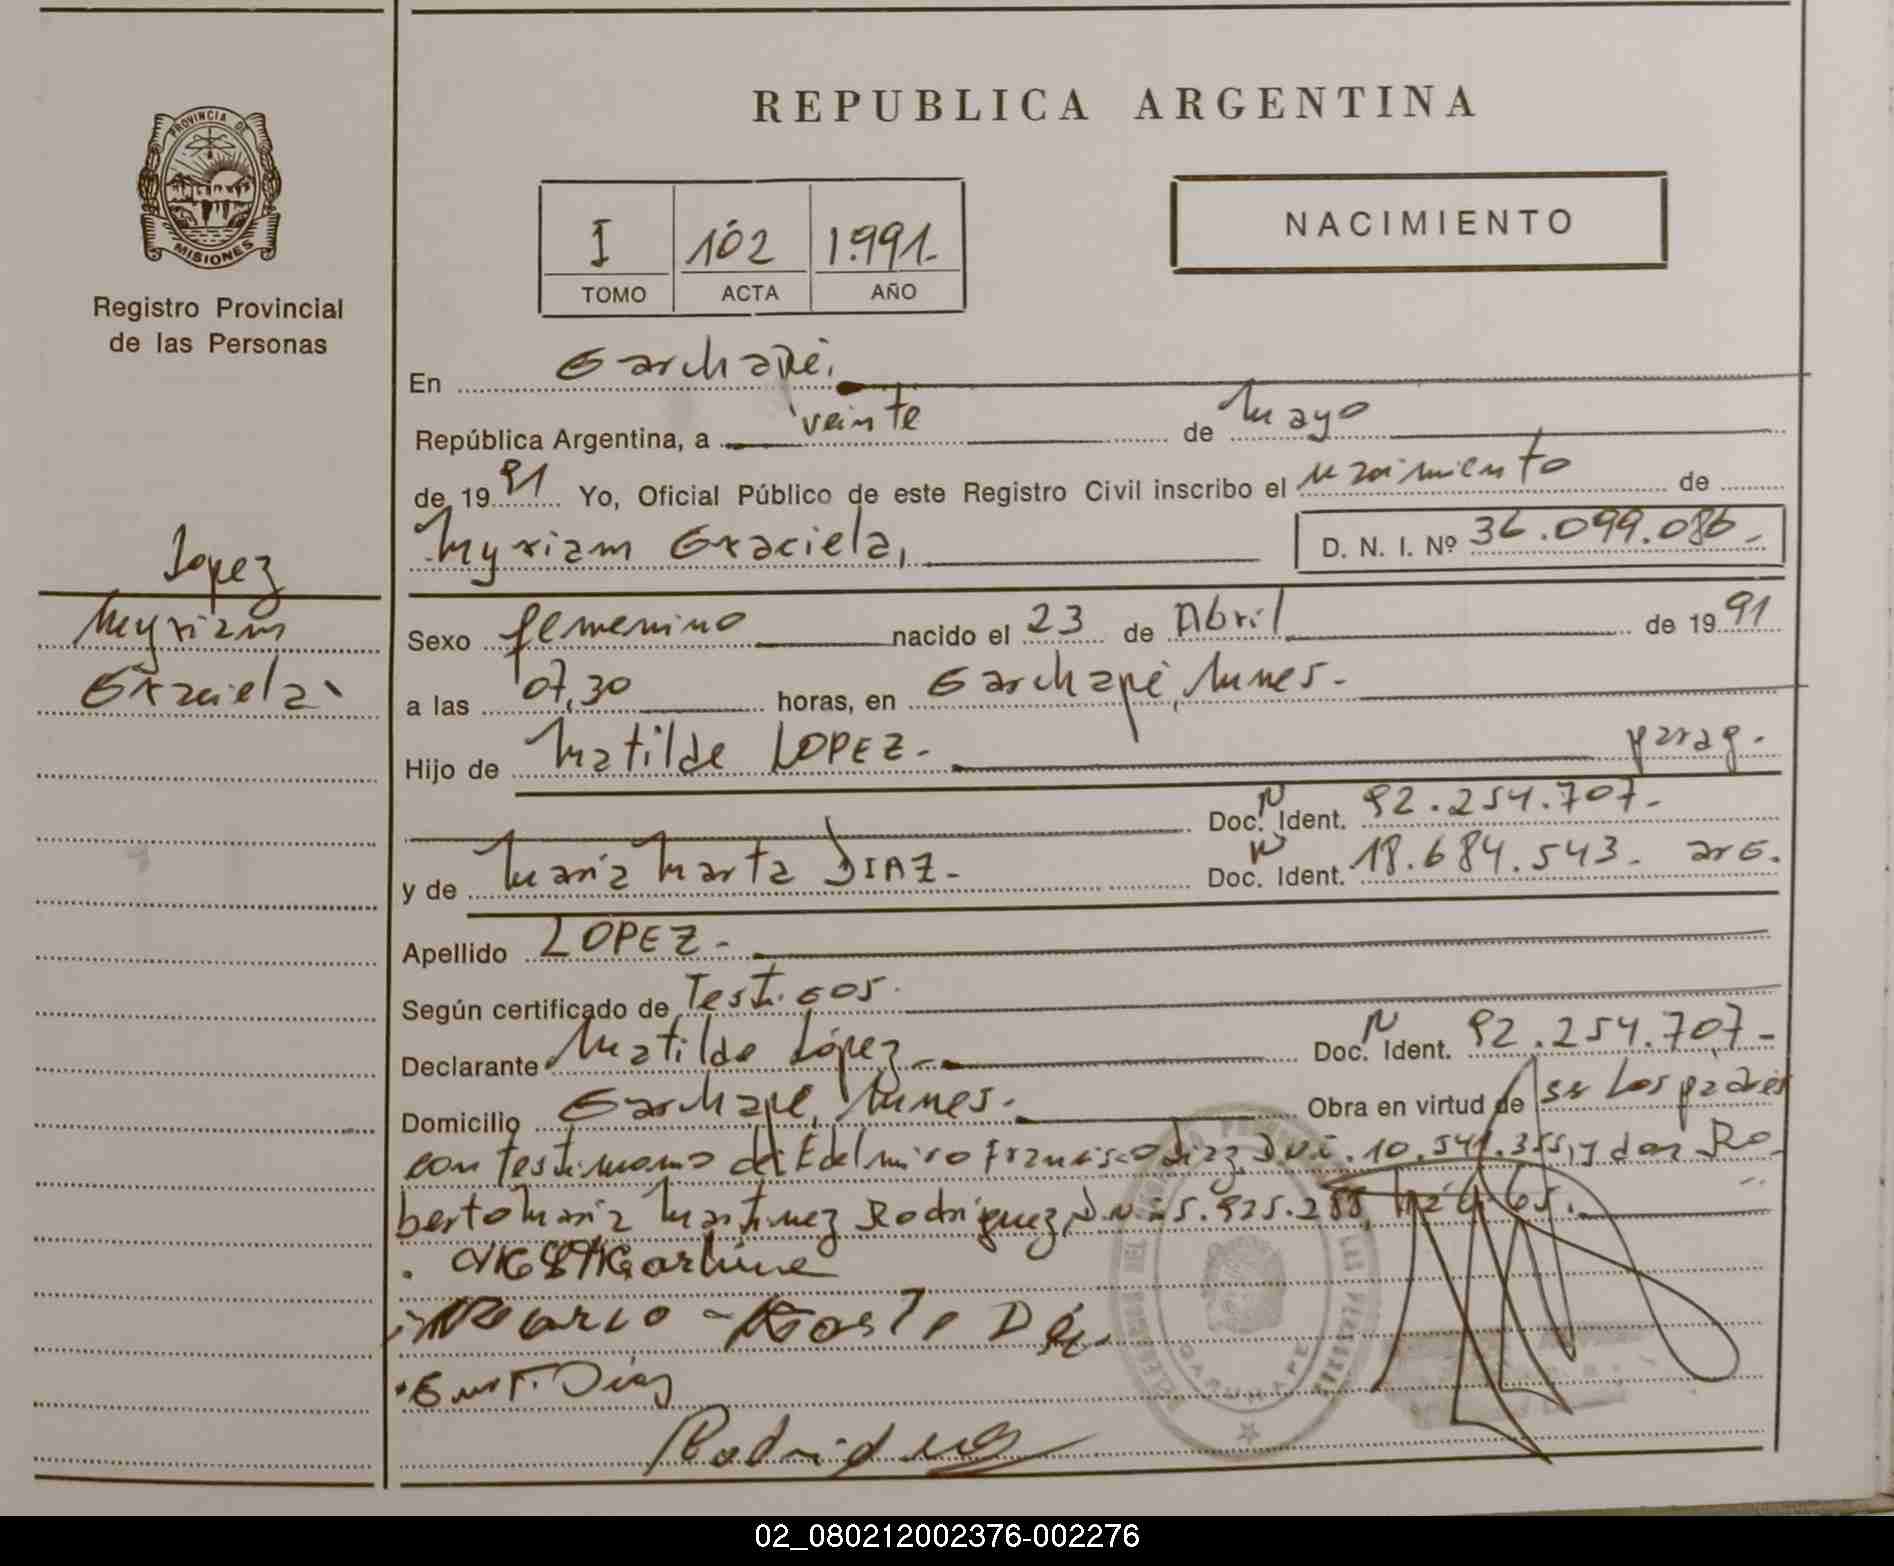 REPUBLICA ARGENTINA
PROVINCIA DE
MISIONES
Registro Provincial
de las Personas
NACIMIENTO
I 102 1.991.
TOMO ACTA AÑO
En Garuhapé.
República Argentina, a veinte de Mayo
de 19 91 Yo, Oficial Público de este Registro Civil inscribo el nacimiento de
Myriam Graciela,
D. N. I. Nº 36.099.086.-
Lopez
Myriam
Graciela
Sexo femenino nacido el 23 de Abril de 19 91
a las 07,30 horas, en Garuhapé, Mnes.-
Hijo de Matilde LOPEZ.- parag.
Doc. N Ident. 92.254.707.-
y de Maria Marta DIAZ.- Doc. N Ident. 18.684.543. arg.
Apellido LOPEZ.-
Según certificado de Testigos.
Declarante Matilde López.- Doc. N Ident. 92.254.707.-
Domicilio Garuhapé, Mnes.- Obra en virtud de ser los padres
con testimonio de Edelmiro Francisco Diaz, D.N.I. 10.541.355, y don Ro-
berto Maria Martinez Rodriguez, D.N.I. 5.925.288,
Diaz
Rodriguez
LAS PERSONAS
GARUHAPE
02_080212002376-002276